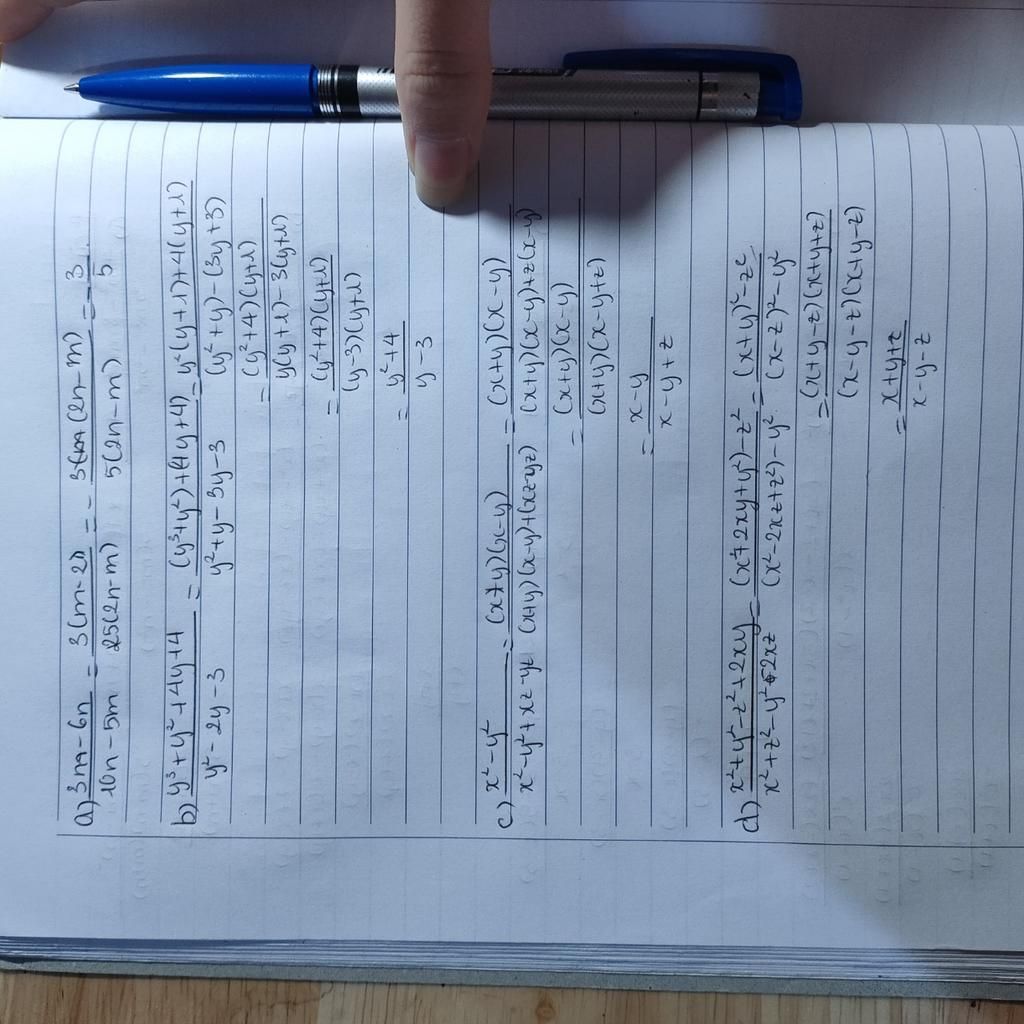 a) 3m - 6n / 10n - 5m = 3(m - 2n) / 5(2n - m) = - 3(2n - m) / 5(2n - m) = - 3 / 5
b) y³ + y² + 4y + 4 / y² - 2y - 3 = (y³ + y²) + (4y + 4) / y² + y - 3y - 3 = y²(y + 1) + 4(y + 1) / (y² + y) - (3y + 3)
= (y² + 4)(y + 1) / y(y + 1) - 3(y + 1)
= (y² + 4)(y + 1) / (y - 3)(y + 1)
= y² + 4 / y - 3
c) x² - y² / x² - y² + xz - yz = (x + y)(x - y) / (x + y)(x - y) + (xz - yz) = (x + y)(x - y) / (x + y)(x - y) + z(x - y)
= (x + y)(x - y) / (x + y)(x - y + z)
= x - y / x - y + z
d) x² + y² - z² + 2xy / x² + z² - y² - 2xz = (x² + 2xy + y²) - z² / (x² - 2xz + z²) - y² = (x + y)² - z² / (x - z)² - y²
= (x + y - z)(x + y + z) / (x - y - z)(x + y - z)
= x + y + z / x - y - z